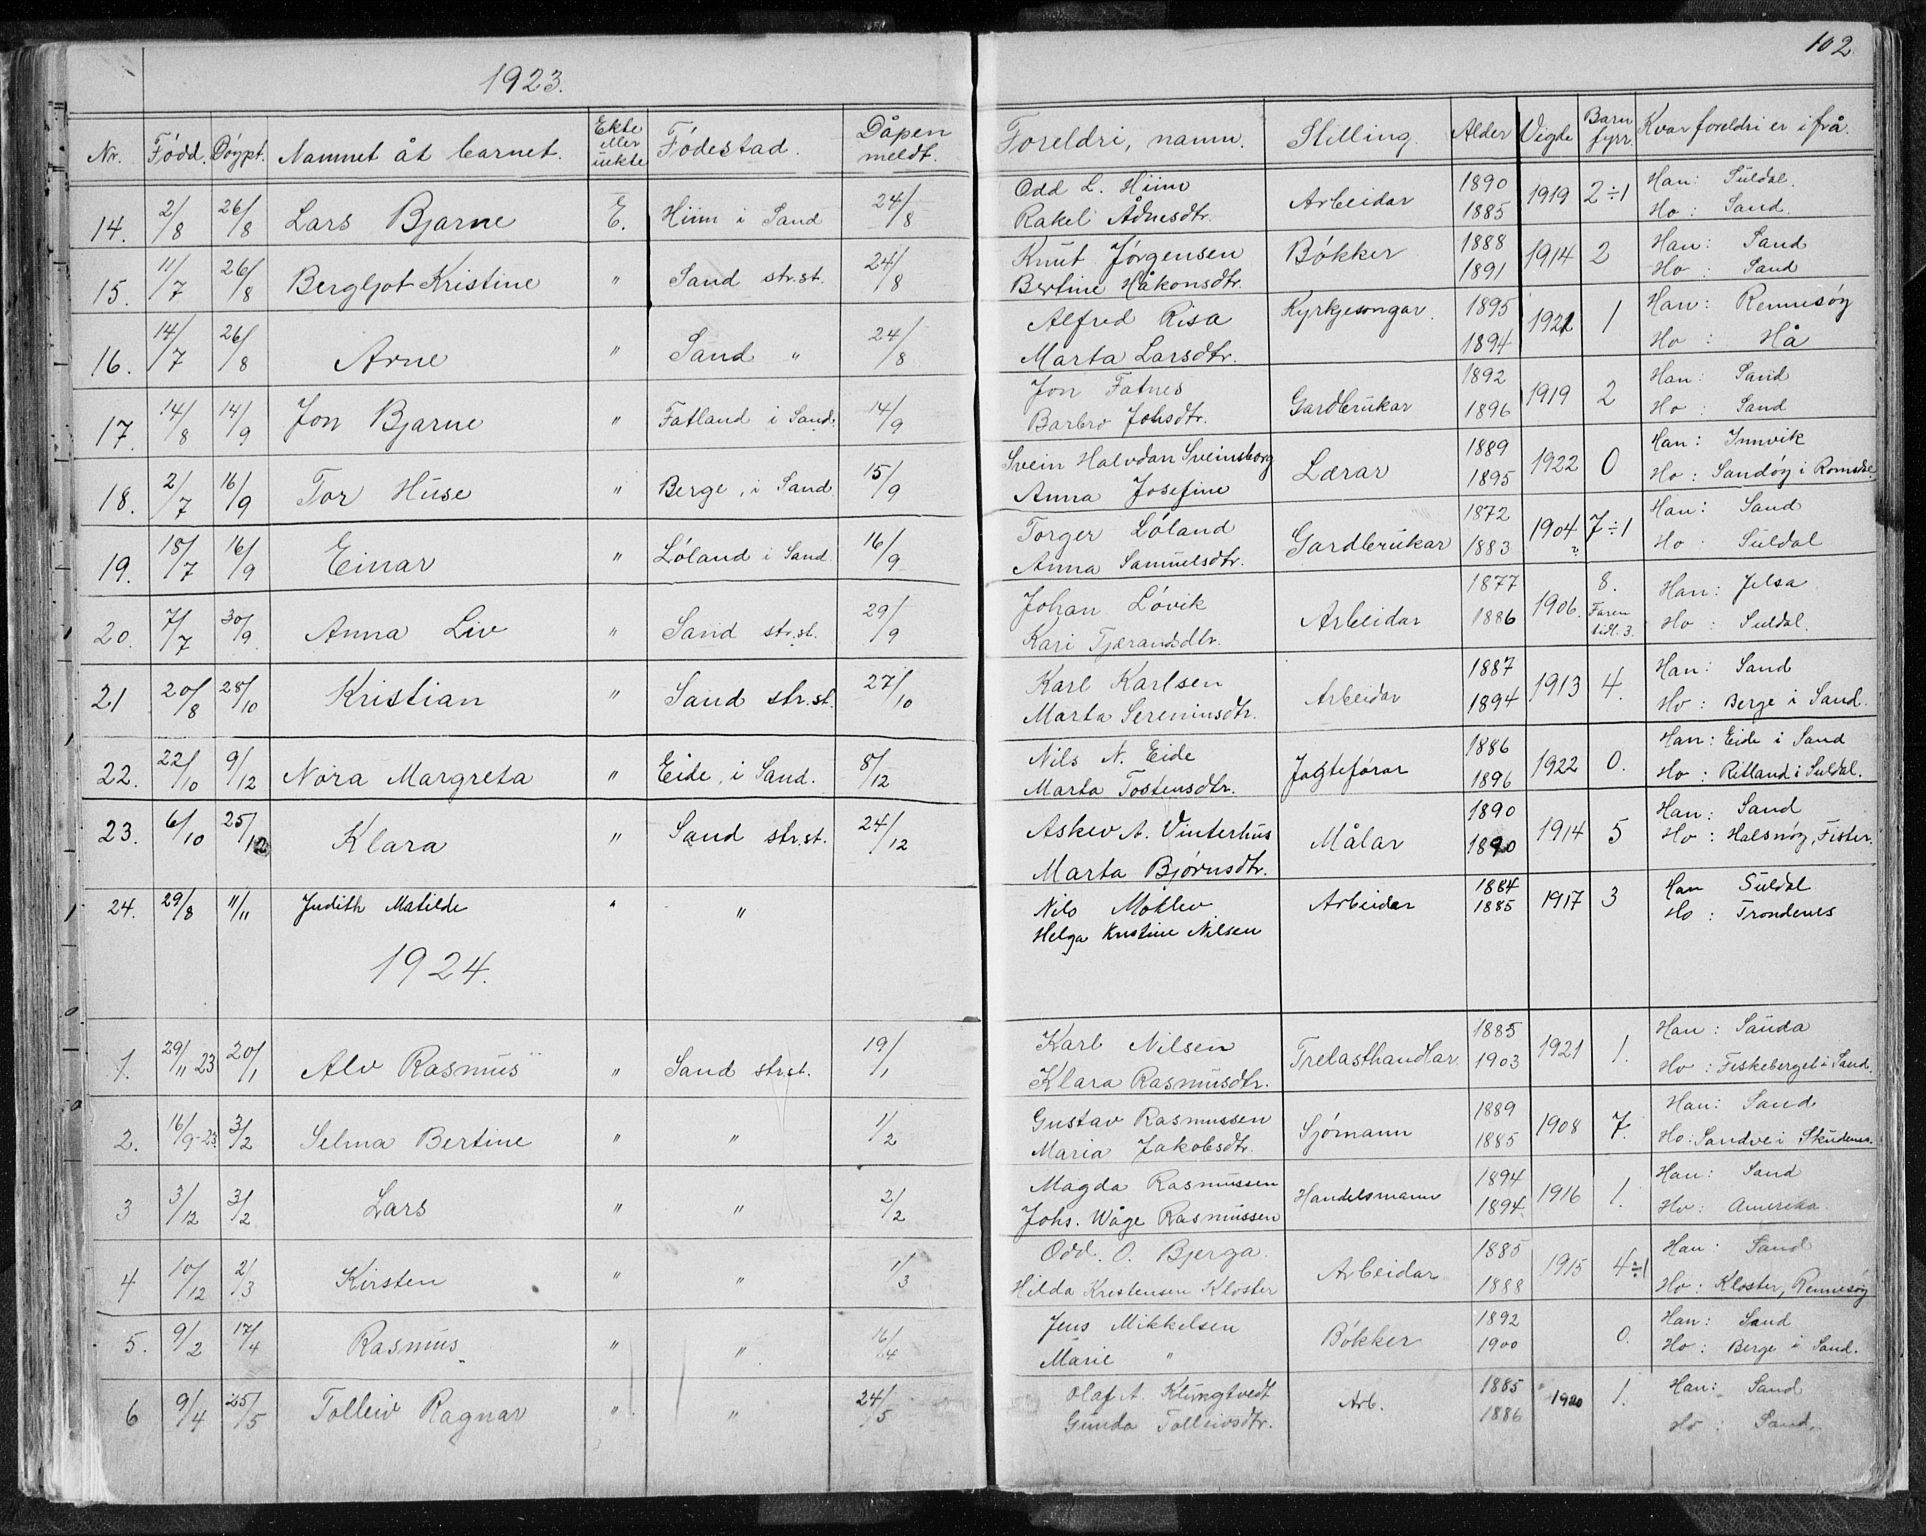 102
1923.
Nr. Född. Döypt. Namnet åt barnet. Ekte eller uekte Födestad. Dåpen meldt. Foreldri, namn. Stilling. Alder Vigde Barn fyrr. Kvar foreldri er ifrå.
14. 2/8 26/8 Lars Bjarne E. Hiim i Sand 24/8 Odd L. Hiim Arbeidar 1890 1919 2÷1 Han: Suldal.
Rakel Ådnesdtr. 1885 Ho: Sand.
15. 11/7 26/8 Bergljot Kristine " Sand str.st. 24/8 Knut Jørgensen Bökker 1888 1914 2 Han: Sand
Bertine Håkonsdtr. 1891 Ho: Sand
16. 14/7 26/8 Arne " Sand " 24/8 Alfred Risa Kyrkjesongar. 1895 1921 1 Han: Rennesöy
Marta Larsdtr. 1894 Ho: Hå
17. 14/8 14/9 Jon Bjarne " Fatland i Sand. 14/9 Jon Fatnes Gardbrukar 1892 1919 2 Han: Sand
Barbro Johsdtr. 1896 Ho: Sand
18. 2/7 16/9 Tor Huse " Berge, i Sand 15/9 Svein Halvdan Sveinsborg Lærar 1889 1922 0 Han: Innvik
Anna Josefine 1895 Ho: Sandöy i Romsdal
19. 18/7 16/9 Einar " Löland i Sand 16/9 Torger Löland Gardbrukar 1872 1904 ? 7÷1 Han: Sand
Anna Samuelsdtr. 1883 Ho: Suldal
20. 7/7 30/9 Anna Liv " Sand str.st. 29/9 Johan Lövik Arbeidar 1877 1906. 8. Faren tidl. 3. Han: Jelsa
Kari Tjerandsdtr. 1886 Ho: Suldal.
21 20/8 28/10 Kristian " Sand str.st. 27/10 Karl Karlsen Arbeidar 1887 1913 4. Han: Sand
Marta Sereniusdtr. 1894 Ho: Berge i Sand.
22. 22/10 9/12 Nora Margreta " Eide, i Sand. 8/12 Nils N. Eide Jagtefórar 1886 1922 0. Han: Eide i Sand
Marta Tostensdtr. 1896 Ho: Ritland i Suldal.
23. 6/10 25/12 Klara " Sand str.st. 24/12 Askev A. Vinterhus Målar 1890 1914 5 Han: Sand
Marta Bjørnsdtr. 1890 Ho: Halsnöy, Fister.
24. 29/8 11/11 Judith Matilde " " Nils Moklev Arbeidar 1884 1917 3 Han Suldal
Helga Kristine Nilsen 1885 Ho: Trondenes
1924.
1. 29/11 23 20/1 Alv Rasmus " Sand str.st. 19/1 Karl Nilsen Trelasthandlar 1885 1921 1. Han: Sauda
Klara Rasmusdtr. 1903 Ho: Fiskeberget i Sand.
2. 16/9-23. 3/2 Selma Bertine " " 1/2 Gustav Rasmussen Sjömann 1889 1908 7. Han: Sand
Maria Jakobsdtr. 1885 Ho: Sandve i Skudenes.
3 3/12 3/2 Lars " " 2/2 Magda Rasmussen Handelsmann 1894 1916 1. Han: Sand
Johs. Våge Rasmussen 1894. Ho: Amerika.
4 10/12 2/3 Kirsten " " 1/3 Odd. O. Bjerga. Arbeidar 1885 1915 4÷1 Han: Sand
Hilda Kristensen Kloster 1888 Ho: Kloster, Rennesöy
5. 9/2 17/4 Rasmus " " 16/4 Jens Mikkelsen Bökker 1892 0. Han: Sand
Marie " 1900 Ho: Berge i Sand.
6 9/4 25/5 Tolleiv Ragnar " " 24/5 Olaf A. Klungtvedt Arb. 1885 1920 1. Han: Sand
Gunda Tolleivsdtr. 1886 Ho: Sand.